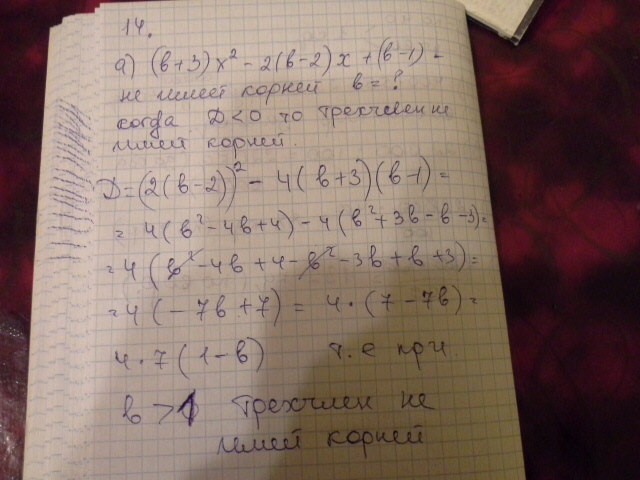 14.
а) (в+3)x² - 2(в-2)x + (в-1) -
не имеет корней в = ?
когда D<0 то трехчлен не
имеет корней.
D = (2(в-2))² - 4(в+3)(в-1) =
= 4(в²-4в+4) - 4(в²+3в-в-3) =
= 4(в²-4в+4-в²-3в+в+3) =
= 4(-7в+7) = 4·(7-7в) =
4·7(1-в) т.е при
в > 1 трехчлен не
имеет корней